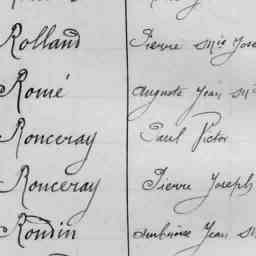 Rolland Pierre Mie Jose
Romé Auguste Jean M
Ronceray Paul Victor
Ronceray Pierre Joseph
Rondin Ambroise Jean M